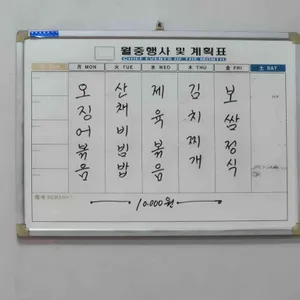 월중행사 및 계획표
CHIEF EVENTS OF THE MONTH
月 MON 火 TUE 水 WED 木 THU 金 FRI 土 SAT
오징어볶음
산채비빔밥
제육볶음
김치찌개
보쌈정식
10.000원